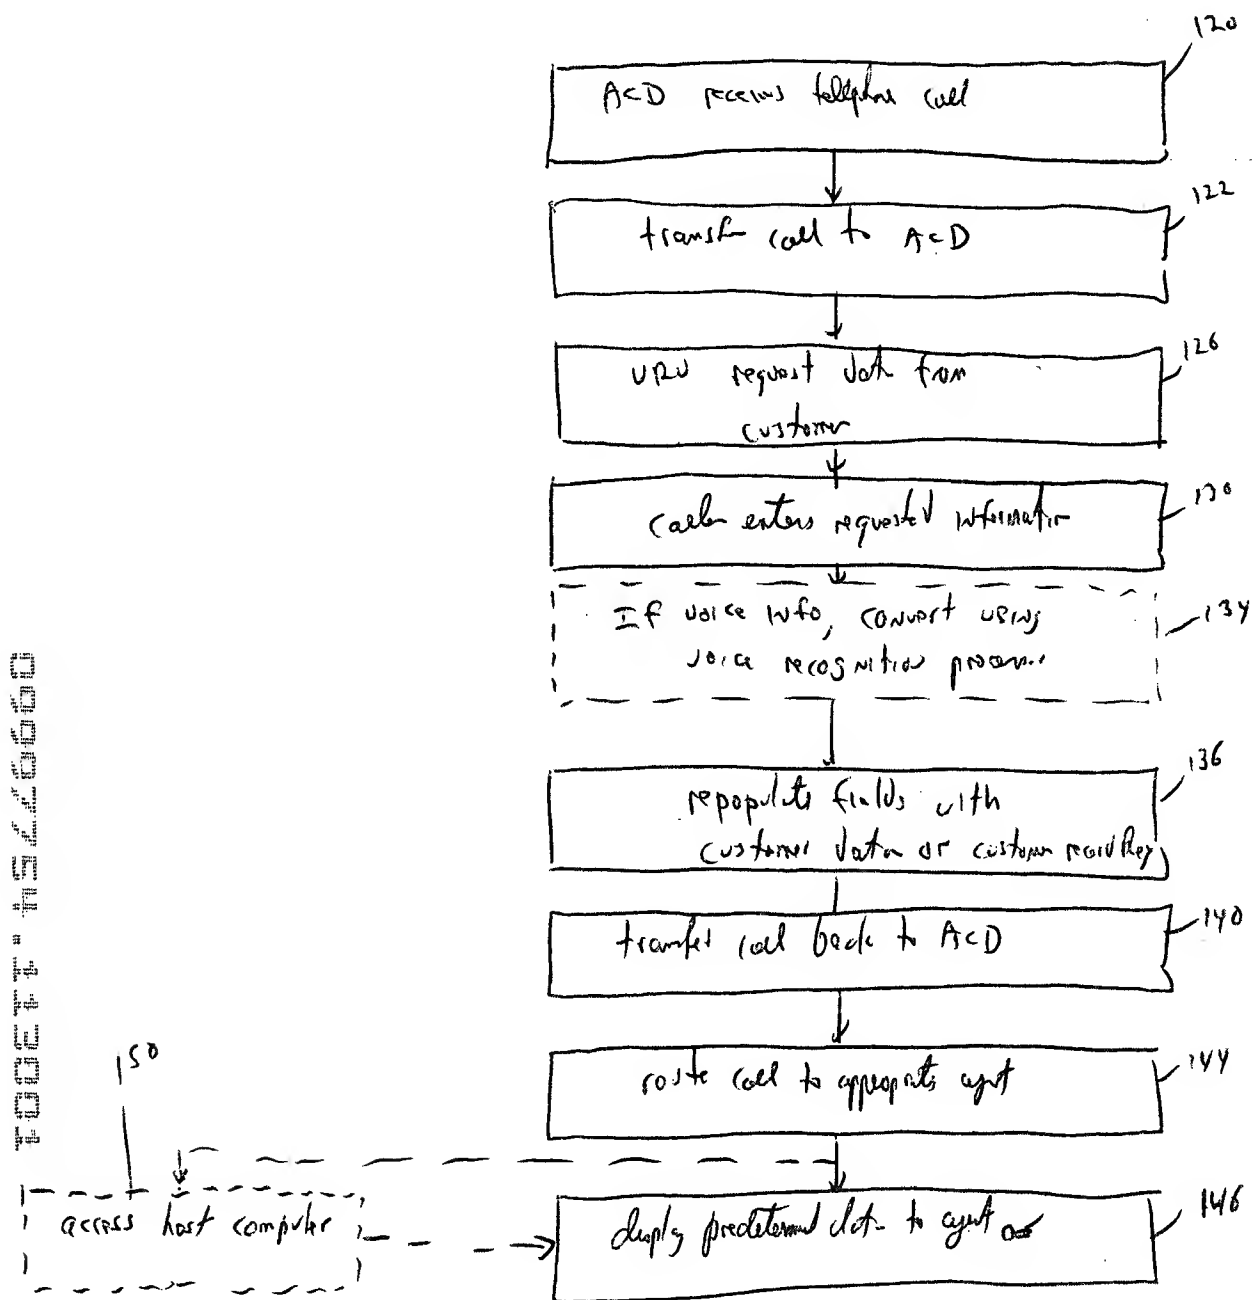 120
ACD receives telephone call
122
transfer call to ACD
126
VRU request data from
customer
130
caller enters requested information
If voice info, convert using
134
voice recognition
136
repopulate fields with
customer data or customer record key
transfer call back to ACD
140
route call to appropriate agent
144
150
access host computer
display predetermined data to agent
146
09997754.113001